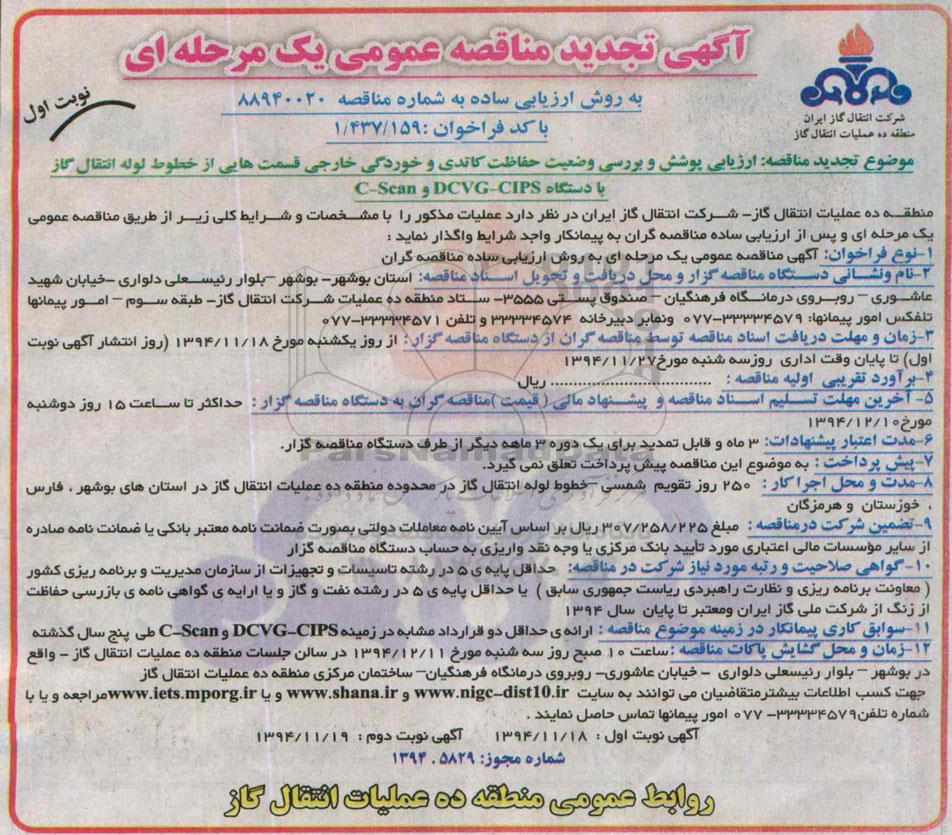 آگهی تجدید مناقصه عمومی یک مرحله ای
نوبت اول
به روش ارزیابی ساده به شماره مناقصه ۸۸۹۴۰۰۲۰
با کد فراخوان :۱/۴۳۷/۱۵۹
شرکت انتقال گاز ایران
منطقه ده عملیات انتقال گاز
موضوع تجدید مناقصه: ارزیابی پوشش و بررسی وضعیت حفاظت کاتدی و خوردگی خارجی قسمت هایی از خطوط لوله انتقال گاز
با دستگاه DCVG-CIPS و C-Scan
منطقه ده عملیات انتقال گاز- شرکت انتقال گاز ایران در نظر دارد عملیات مذکور را با مشخصات و شرایط کلی زیر از طریق مناقصه عمومی
یک مرحله ای و پس از ارزیابی ساده مناقصه گران به پیمانکار واجد شرایط واگذار نماید :
۱-نوع فراخوان: آگهی مناقصه عمومی یک مرحله ای به روش ارزیابی ساده مناقصه گران
۲-نام ونشانی دستگاه مناقصه گزار و محل دریافت و تحویل اسناد مناقصه: استان بوشهر- بوشهر –بلوار رئیسعلی دلواری -خیابان شهید
عاشوری – روبروی درمانگاه فرهنگیان – صندوق پستی ۳۵۵۵- ستاد منطقه ده عملیات شرکت انتقال گاز- طبقه سوم – امور پیمانها
تلفکس امور پیمانها: ۳۳۳۳۴۵۷۹-۰۷۷ ونمابر دبیرخانه ۳۳۳۳۴۵۷۴ و تلفن ۳۳۳۳۴۵۷۱-۰۷۷
۳-زمان و مهلت دریافت اسناد مناقصه توسط مناقصه گران از دستگاه مناقصه گزار: از روز یکشنبه مورخ ۱۳۹۴/۱۱/۱۸ (روز انتشار آگهی نوبت
اول) تا پایان وقت اداری روزسه شنبه مورخ۱۳۹۴/۱۱/۲۷
۴-برآورد تقریبی اولیه مناقصه : .................................... ریال
۵- آخرین مهلت تسلیم اسناد مناقصه و پیشنهاد مالی ( قیمت )مناقصه گران به دستگاه مناقصه گزار : حداکثر تا ساعت ۱۵ روز دوشنبه
مورخ۱۳۹۴/۱۲/۱۰
۶-مدت اعتبار پیشنهادات: ۳ ماه و قابل تمدید برای یک دوره ۳ ماهه دیگر از طرف دستگاه مناقصه گزار.
۷-پیش پرداخت : به موضوع این مناقصه پیش پرداخت تعلق نمی گیرد.
۸-مدت و محل اجرا کار : ۲۵۰ روز تقویم شمسی –خطوط لوله انتقال گاز در محدوده منطقه ده عملیات انتقال گاز در استان های بوشهر ، فارس
، خوزستان و هرمزگان
۹-تضمین شرکت درمناقصه : مبلغ ۳۰۷/۲۵۸/۲۲۵ ریال بر اساس آیین نامه معاملات دولتی بصورت ضمانت نامه معتبر بانکی یا ضمانت نامه صادره
از سایر مؤسسات مالی اعتباری مورد تأیید بانک مرکزی یا وجه نقد واریزی به حساب دستگاه مناقصه گزار
۱۰-گواهی صلاحیت و رتبه مورد نیاز شرکت در مناقصه: حداقل پایه ی ۵ در رشته تاسیسات و تجهیزات از سازمان مدیریت و برنامه ریزی کشور
( معاونت برنامه ریزی و نظارت راهبردی ریاست جمهوری سابق ) یا حداقل پایه ی ۵ در رشته نفت و گاز و یا ارایه ی گواهی نامه ی بازرسی حفاظت
از زنگ از شرکت ملی گاز ایران ومعتبر تا پایان سال ۱۳۹۴
۱۱-سوابق کاری پیمانکار در زمینه موضوع مناقصه : ارائه ی حداقل دو قرارداد مشابه در زمینه DCVG-CIPS و C-Scan طی پنج سال گذشته
۱۲-زمان و محل گشایش پاکات مناقصه :ساعت ۱۰ صبح روز سه شنبه مورخ ۱۳۹۴/۱۲/۱۱ در سالن جلسات منطقه ده عملیات انتقال گاز – واقع
در بوشهر – بلوار رئیسعلی دلواری - خیابان عاشوری- روبروی درمانگاه فرهنگیان– ساختمان مرکزی منطقه ده عملیات انتقال گاز
جهت کسب اطلاعات بیشترمتقاضیان می توانند به سایت www.nigc-dist10.ir و www.shana.ir و یا www.iets.mporg.irمراجعه و یا با
شماره تلفن۳۳۳۳۴۵۷۹-۰۷۷ امور پیمانها تماس حاصل نمایند .
آگهی نوبت اول : ۱۳۹۴/۱۱/۱۸ آگهی نوبت دوم : ۱۳۹۴/۱۱/۱۹
شماره مجوز: ۵۸۲۹ . ۱۳۹۴
روابط عمومی منطقه ده عملیات انتقال گاز
ParsNamadData